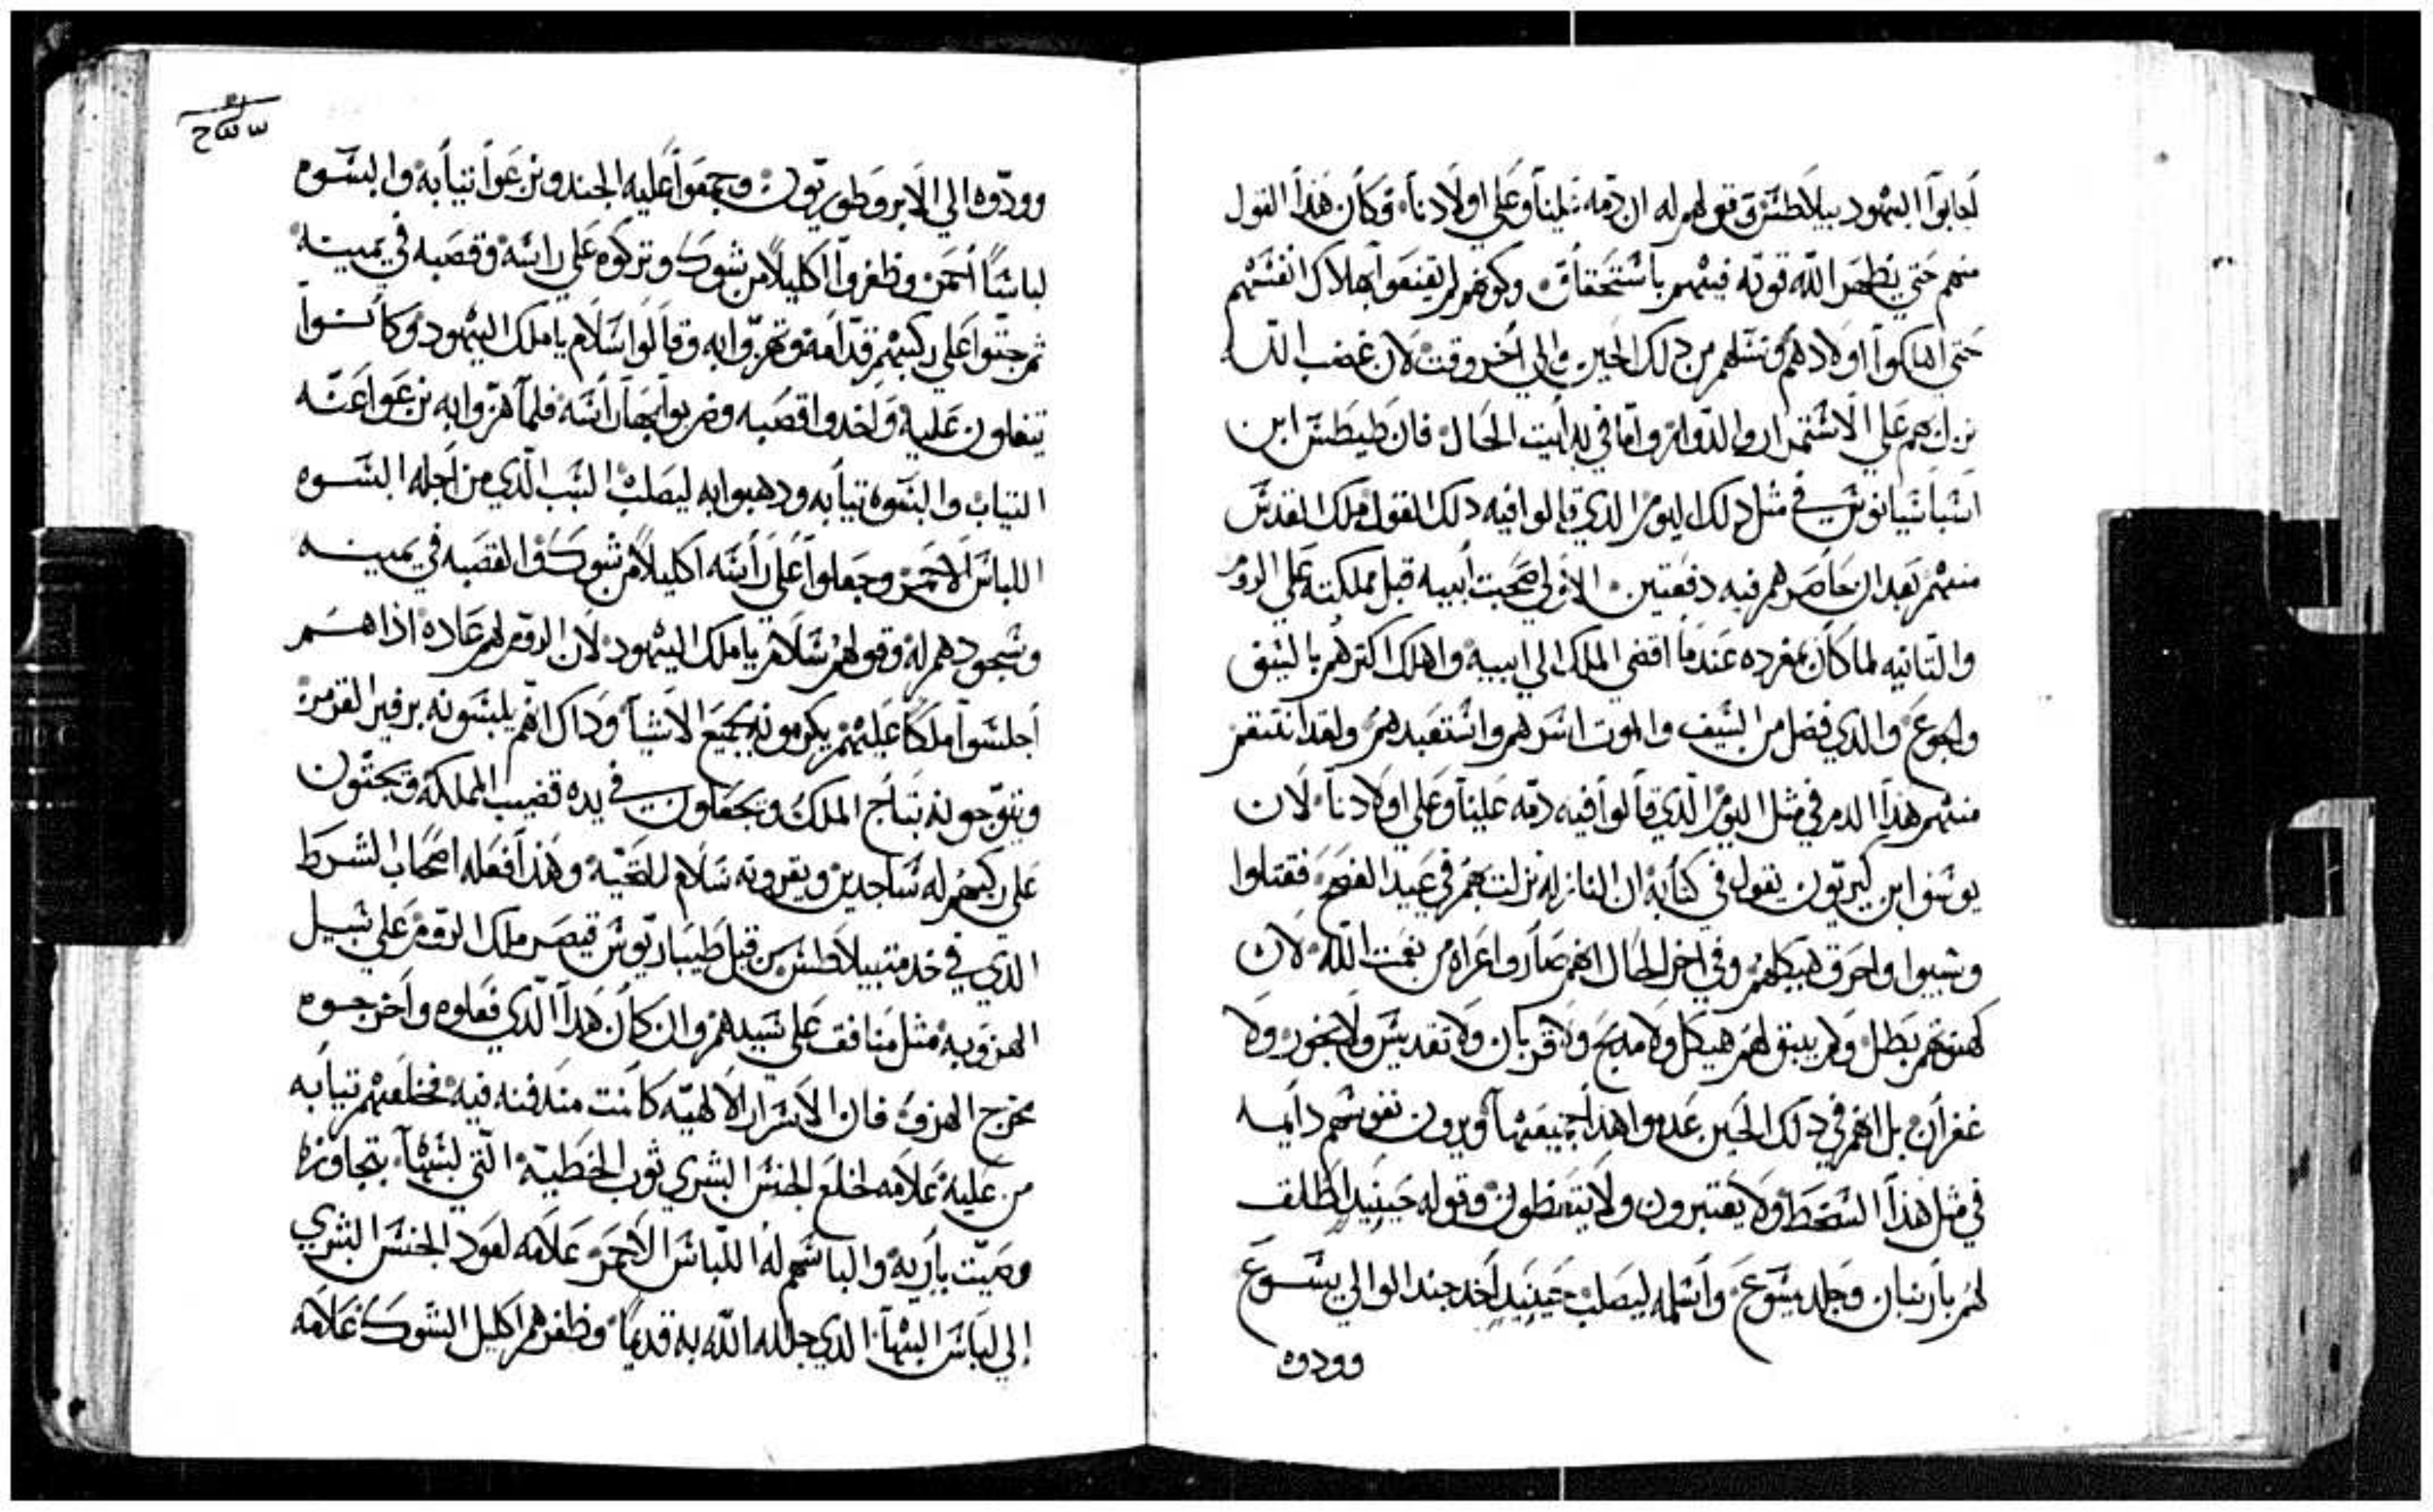 اجابوا اليهود بيلاطس وقولهم له ان دمه علينا وعلي اولادنا وكان هذا القول
منهم حتي يظهر الله قوته فيهم باستحقاق وكونهم لم يقنعوا بهلاك انفسهم
حتي اهلكوا اولادهم ونسلهم من دلك الحين والي اخر وقت لان غضب الله
نزل بهم علي الاستمرار والدوام واما في بدايت الحال فان طيطس ابن
اسباسيانوس في مثل دلك اليوم الدي قالوا فيه دلك القول ملك القدس
منهم بعد ان حاصرهم فيه دفعتين الاولي صحبت ابيه قبل مملكته علي الروم
والتانيه لما كان بمفرده عندما افضي الملك الي ابيه واهلك اكترهم بالسيف
والجوع والدي فضل من السيف والموت اسرهم واستعبدهم ولقد انتقم
منهم هذا الدم في مثل اليوم الدي قالوا فيه دمه علينا وعلي اولادنا لان
يوسف ابن كريون يقول في كتابه ان النازله نزلت بهم في عيد الفصح فقتلوا
وسبوا واحرق هيكلهم وفي اخر الحال انهم صاروا عراه من نعمت الله لان
كهنوتهم بطل ولم يبق لهم هيكل ولا مدبح ولا قربان ولا تقديس ولا بخور ولا
غفران بل انهم في دلك الحين عدموا هذا جميعها ويرون نفوسهم دايما
في مثل هذا السخط ولا يعتبرون ولا يتعظون وقوله حينيد اطلق
لهم باربان وجلد يسوع واسلمه ليصلب حينيد اخد جند الوالي يسوع
وودوه
وودوه الي الابروطوريون وجمعوا عليه الجند ونزعوا تيابه والبسوه
لباسا احمر وظفروا اكليلا من شوك وتركوه علي راسه وقصبه في يمينه
ثم جتوا علي ركبهم قدامه وتهزوا به وقالوا سلام يا ملك اليهود وكانوا
يتفلون عليه واخدوا قصبه وضربوا بها راسه فلما هزوا به نزعوا عنه
التياب والبسوه تيابه ودهبوا به ليصلب السبب الدي من اجله البسوه
اللباس الاحمر وجعلوا علي راسه اكليلا من شوك والقصبه في يمينه
وسجودهم له وقولهم سلام يا ملك اليهود لان الروم لهم عاده اذا هم
اجلسوا ملكا عليهم يكرمونه بجميع الاشيا وداك انهم يلبسونه برفير القرمز
ويتوجونه بتاج الملك ويجعلون في يده قضيب المملكه ويجتون
علي ركبهم له ساجدين ويقروته سلام للتحيه وهذا فعله اصحاب الشرط
الدي في خدمت بيلاطس من قبل طيباريوس قيصر ملك الروم علي سبيل
الهزو به مثل منافق علي سيدهم وان كان هدا الدي فعلوه واخرجوه
مخرج الهزو فان الاسرار الالهيه كانت مندفنه فيه فخلعهم تيابه
من عليه علامه لخلع الجنس البشري ثوب الخطية التي لبسها بتجاوزه
وصيت باريه والباسهم له اللباس الاحمر علامه لعود الجنس البشري
إلي لباس البها الدي جلله الله به قديما وظفرهم اكليل الشوك علامه